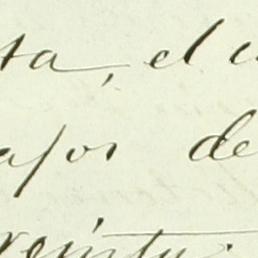 ta, el
ajos de
veinti